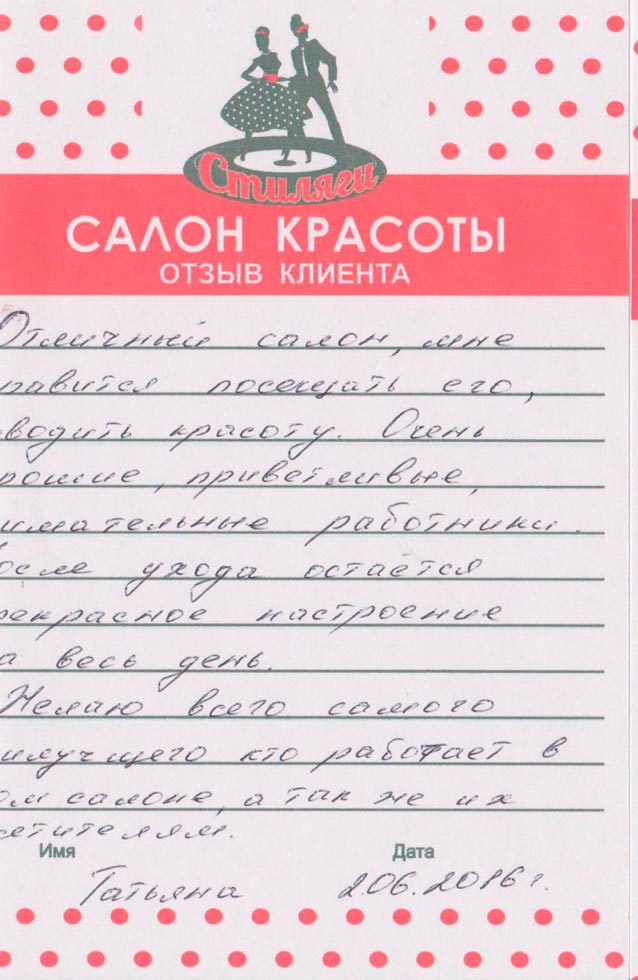 Стиляги
САЛОН КРАСОТЫ
ОТЗЫВ КЛИЕНТА
Отличный салон, мне
равится посещать его,
водить красоту. Очень
рошие, приветливые,
имательные работники.
осле ухода остаётся
рекрасное настроение
а весь день.
Желаю всего самого
илучщего кто работает в
ом салоне, а так же их
етителям.
Имя Дата
Татьяна 2.06.2016 г.